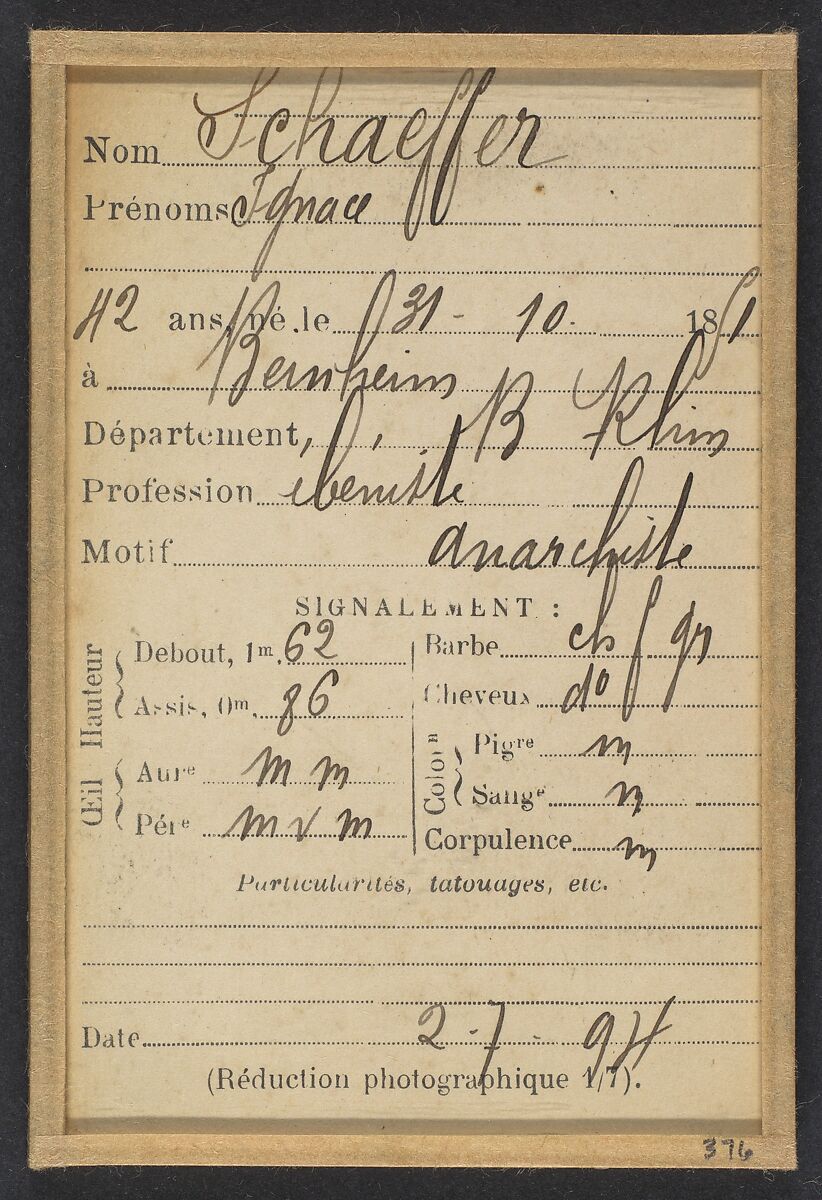 Nom Schaeffer
Prénoms Ignace
42 ans, né le 31 - 10 - 1851
à Bernheim
Département, B Rhin
Profession ébéniste
Motif anarchiste
SIGNALEMENT :
Hauteur
Debout, 1m,62
Assis, 0m, 86
Œil
Aure m m
Pére m v m
Barbe ch f gr
Cheveux do
Colon
Pigre m
Sange m
Corpulence m
Particularités, tatouages, etc.
Date 2 - 7 - 94
(Réduction photographique 1/7).
376